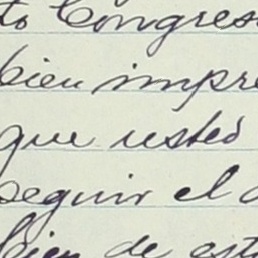 to Congreso
bien impre
que usted
seguir el
bien de est